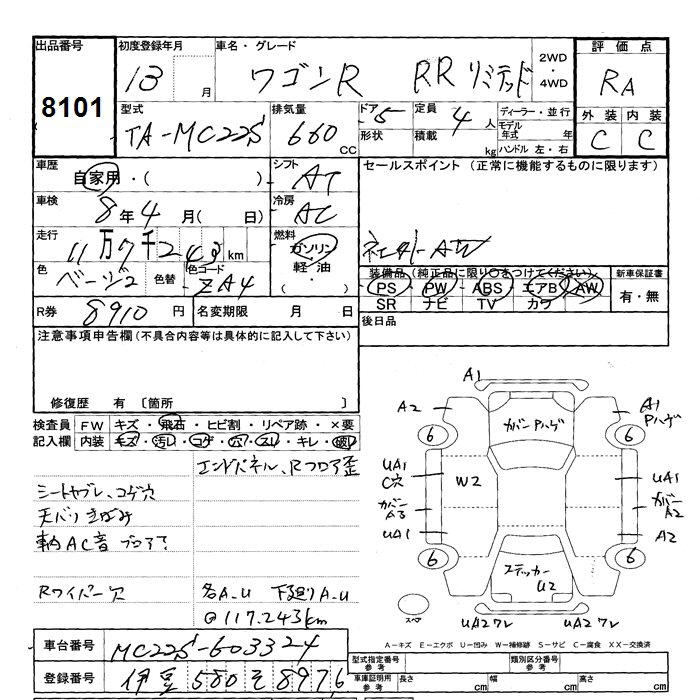 出品番号
8101
初度登録年月
13 月
車名・グレード
ワゴンR RRリミテッド
2WD
・
4WD
評価点
RA
外装 内装
C C
型式
TA-MC22S
排気量
660 CC
ドア 5
形状
定員 4 人
積載 kg
ディーラー・並行
モデル年式 年
ハンドル 左・右
車歴
自家用・( )
シフト
AT
車検
8年4月( 日)
冷房
AC
走行
11万7千243km
燃料
ガソリン
軽・油
・
色
ベージ2
色替
色コード
ZA4
R券
8910 円
名変期限 月 日
セールスポイント (正常に機能するものに限ります)
社外AW
装備品 (純正品に限り○をつけてください)
PS・PW・ABS・エアB・AW
SR ナビ TV カワ
新車保証書
有・無
後日品
注意事項申告欄 (不具合内容等は具体的に記入して下さい)
修復歴 有 〔箇所
検査員 FW キズ・飛石・ヒビ割・リペア跡・×要
記入欄 内装 キズ・汚レ・コゲ・穴・スレ・キレ・破レ
エンドパネル、Rフロア歪
シートヤブレ、コゲ穴
天バリきばみ
AC音 ブロア?
Rワイパー欠
各A.U 下廻りA.U
@117.243km
車台番号
MC22S-603324
登録番号
伊豆580そ8976
A1
A2
カバーPハゲ
A1
Pハゲ
6
6
UA1
C穴
W2
UA1
カバー
A3
カバー
A2
UA1
A2
6
6
ステッカー
U2
スペア
UA2ワレ
UA2ワレ
A-キズ E-エクボ U-凹み W-補修跡 S-サビ C-腐食 XX-交換済
型式指定番号
参考
類別区分番号
参考
車庫証明用
参考
長さ cm
幅 cm
高さ cm